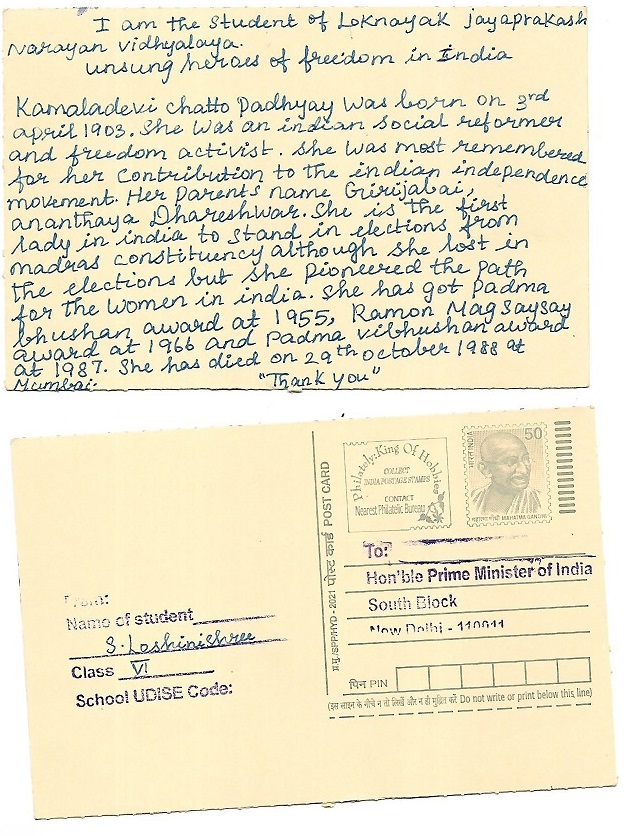 I am the student of Loknayak jayaprakash
Narayan vidhyalaya.
unsung heroes of freedom in India
Kamaladevi chatto Padhyay was born on 3rd
april 1903. She was an indian social reformer
and freedom activist. She was most remembered
for her contribution to the indian independence
movement. Her parents name Girijabai,
ananthaya Dhareshwar. She is the first
lady in india to stand in elections from
madras constituency although she lost in
the elections but she pioneered the path
for the women in india. She has got padma
bhushan award at 1955, Ramon Magsaysay
award at 1966 and padma vibhushan award
at 1987. She has died on 29th october 1988 at
Mumbai.
"Thank you"
Philately: King Of Hobbies
COLLECT
INDIA POSTAGE STAMPS
CONTACT
Nearest Philatelic Bureau
50
भारत INDIA
महात्मा गाँधी MAHATMA GANDHI
प्र.मु./SPP/HYD - 2021 पोस्ट कार्ड POST CARD
To:
Hon'ble Prime Minister of India
South Block
New Delhi - 110011
पिन PIN
(इस लाइन के नीचे न तो लिखें और न ही मुद्रित करें Do not write or print below this line)
From:
Name of student
S. Loshinishree
Class VI
School UDISE Code: